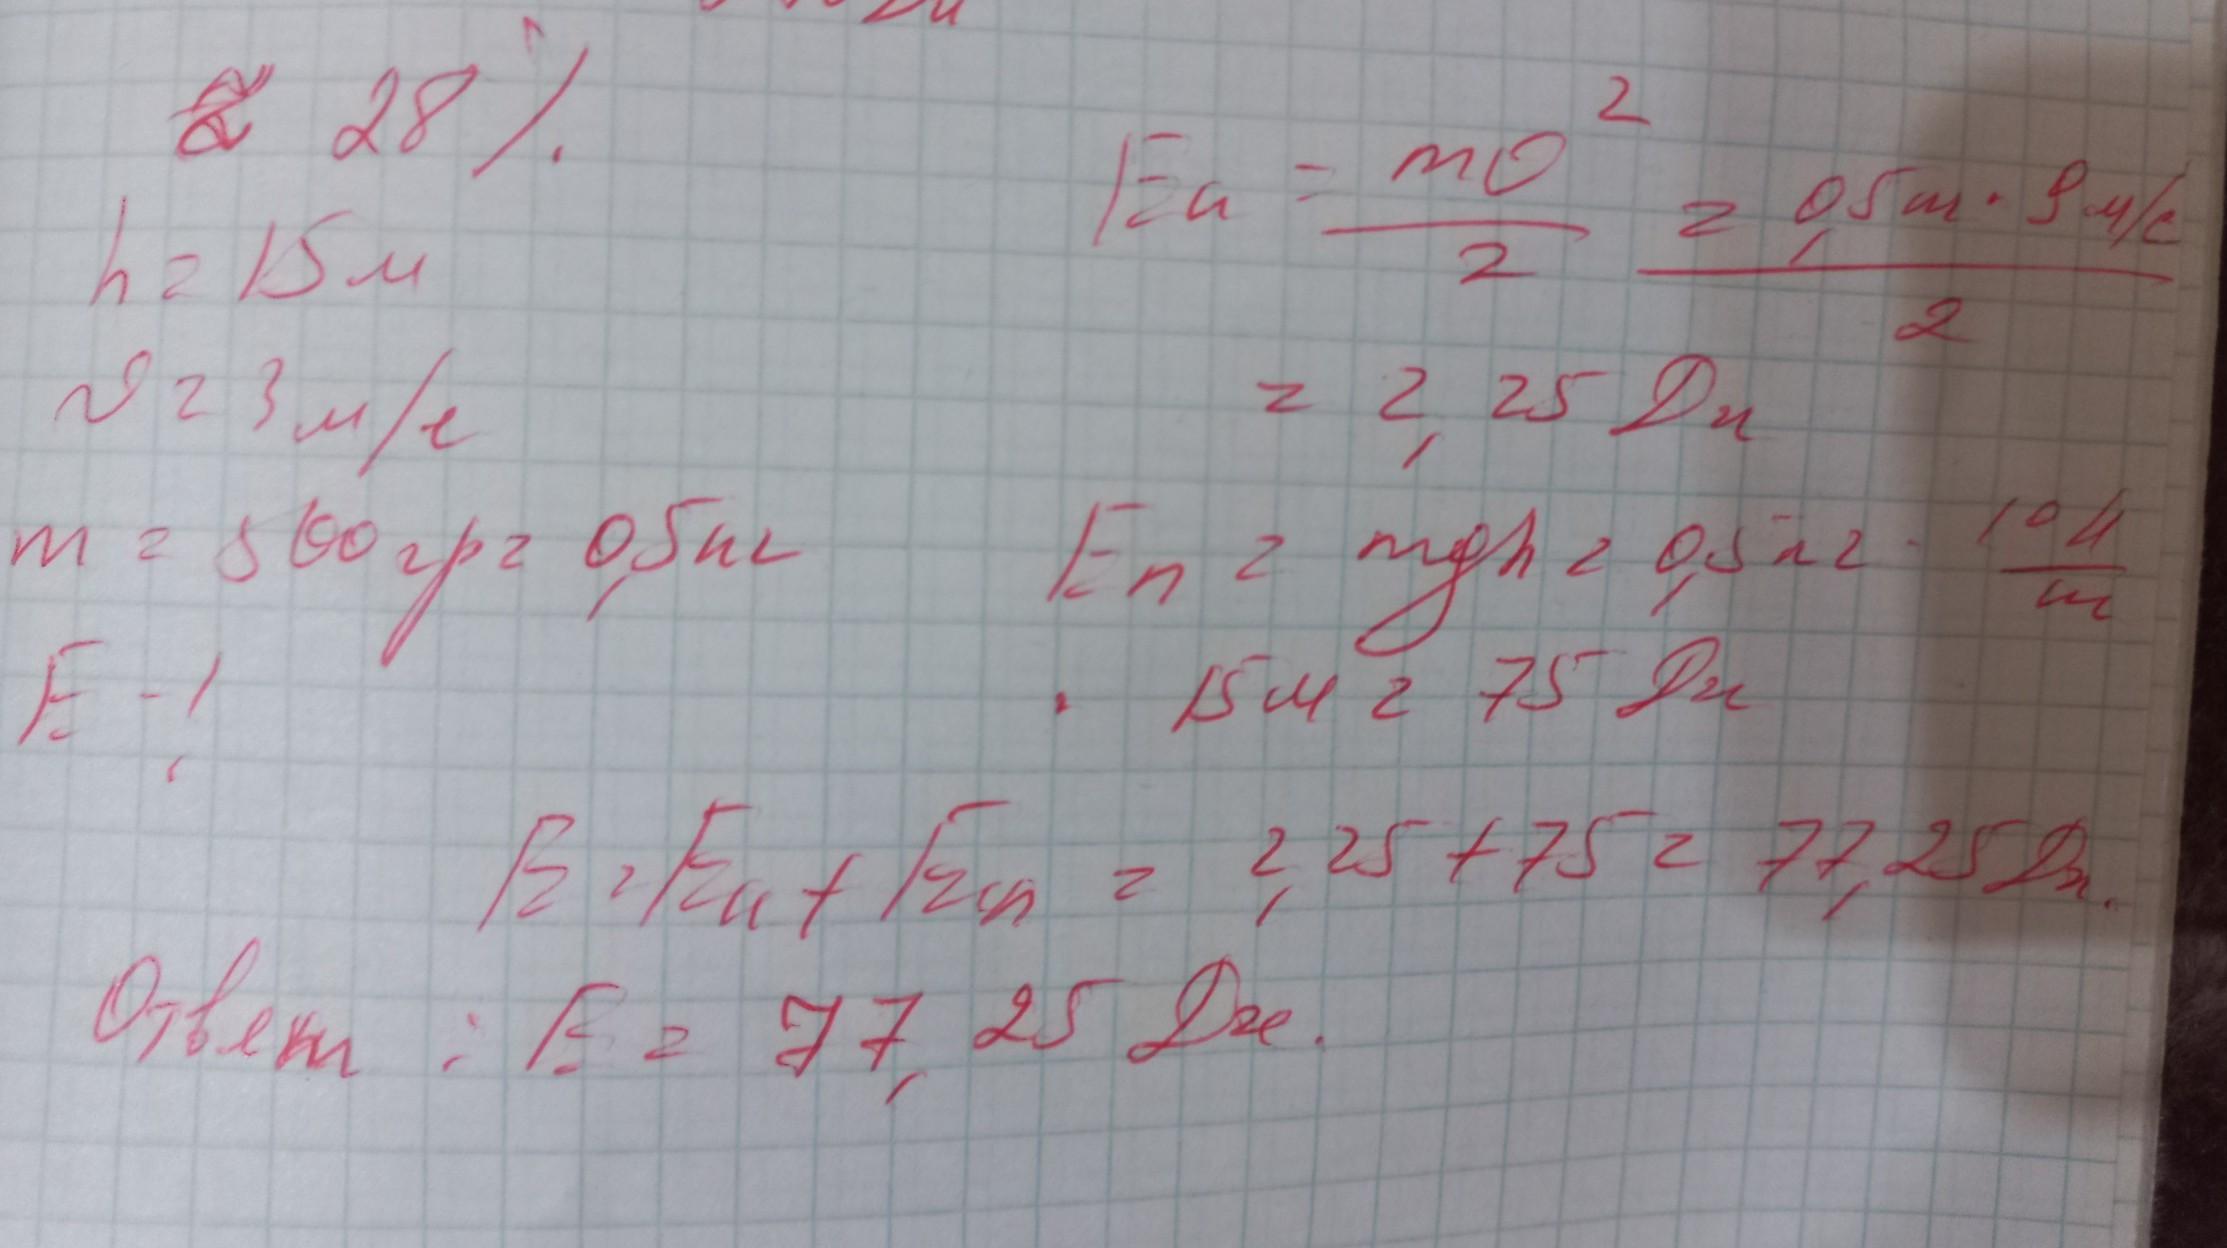 28%.
h = 15 м
υ = 3 м/с
m = 500 гр = 0,5 кг
E - ?
Eк = mυ²/2 = 0,5 кг · 9 м/с / 2
= 2,25 Дж
Eп = mgh = 0,5 кг · 10 Н/кг
· 15 м = 75 Дж
E = Eк + Eп = 2,25 + 75 = 77,25 Дж.
Ответ : E = 77,25 Дж.